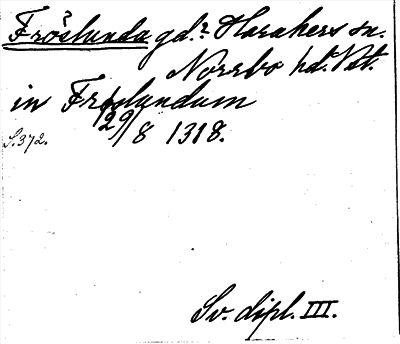 Fröslunda gd.? Harakers sn.
Norrbo hd. Vst.
in Fröslundum
29/8 1318.
S. 372.
Sv. dipl. III.